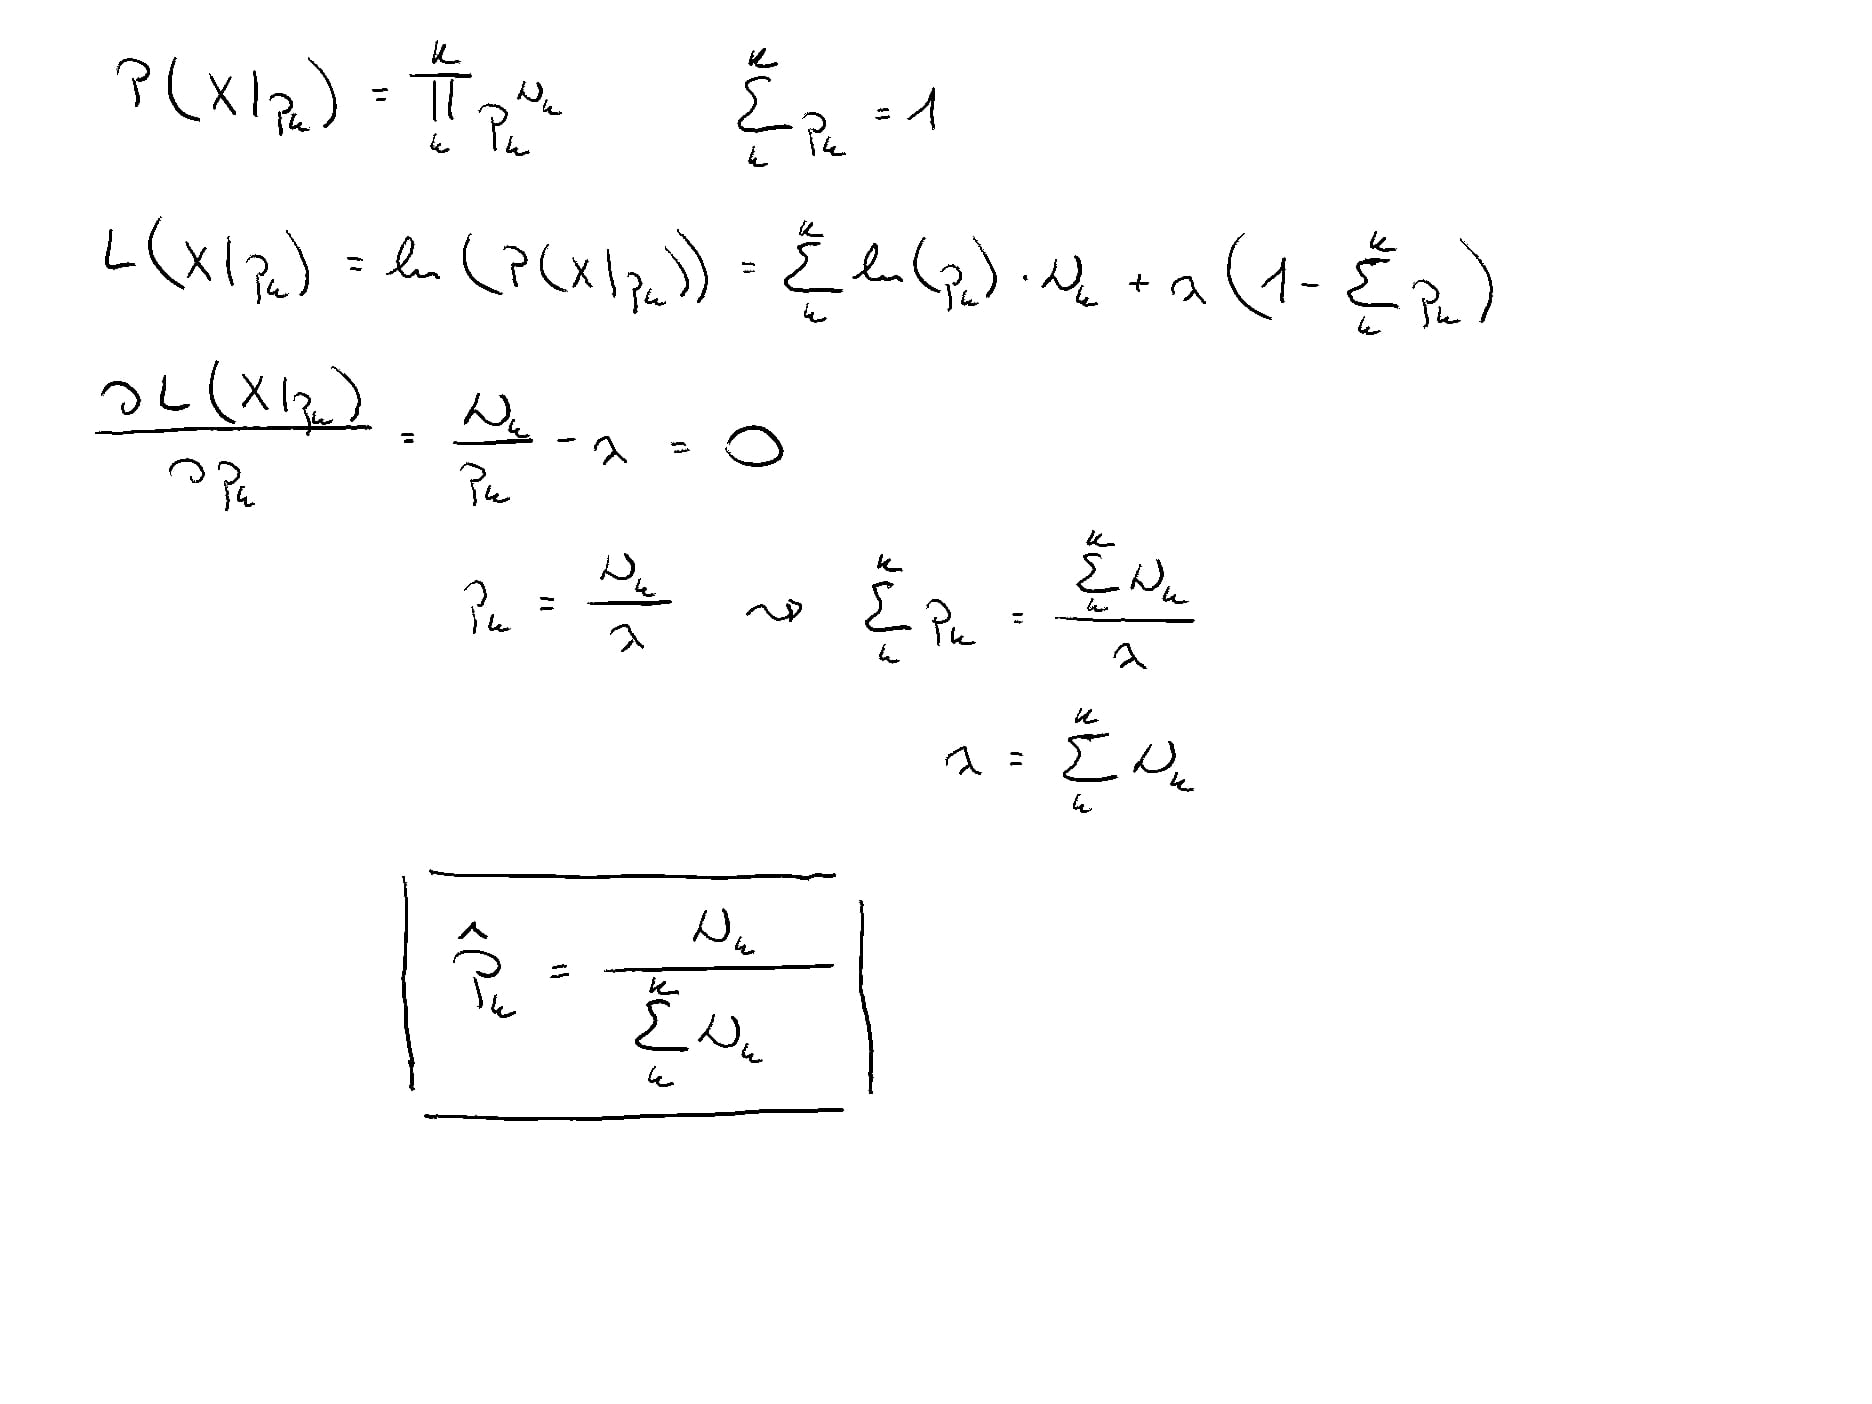 P(X|p_k) = ∏_k^K p_k^{N_k}    ∑_k^K p_k = 1
L(X|p_k) = ln(P(X|p_k)) = ∑_k^K ln(p_k) · N_k + λ(1 - ∑_k^K p_k)
∂L(X|p_k) / ∂p_k = N_k / p_k - λ = 0
p_k = N_k / λ ⇝ ∑_k^K p_k = ∑_k^K N_k / λ
λ = ∑_k^K N_k
p̂_k = N_k / ∑_k^K N_k